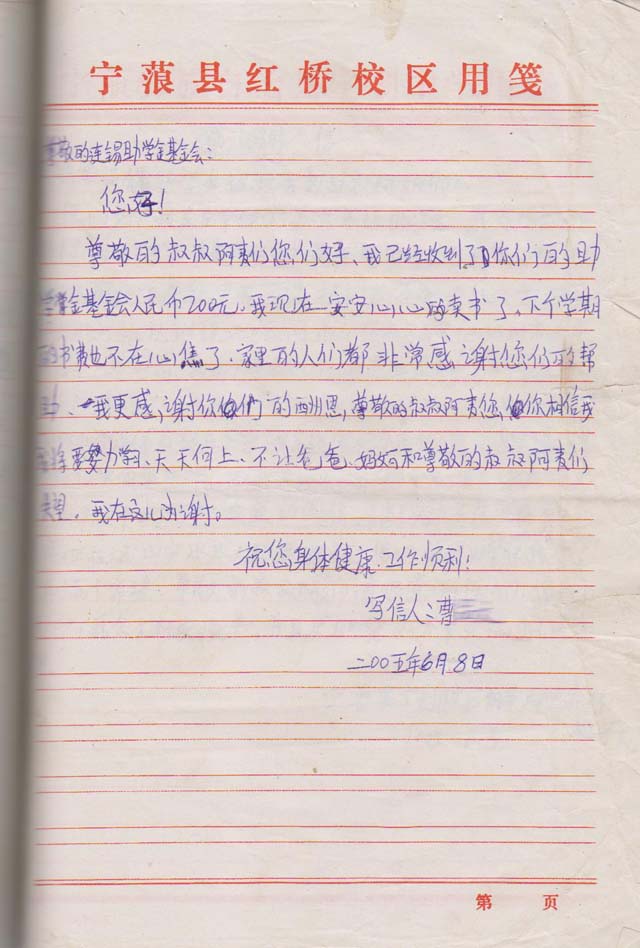 宁蒗县红桥校区用笺
尊敬的连锡助学基金会:
您好!
尊敬的叔叔阿姨们您们好、我已经收到了你们的助
学金基金会人民币200元.我现在安安心心的卖书了、下个学期
的书费也不在心焦了、家里的人们都非常感谢您们的帮
助、我更感谢你们的酬恩,尊敬的叔叔阿姨您,你相信我
我将要努力学、天天向上、不让爸爸、妈妈和尊敬的叔叔阿姨们
失望.我在这儿谢谢。
祝您身体健康.工作顺利!
写信人:曹
二00五年6月8日
第 页